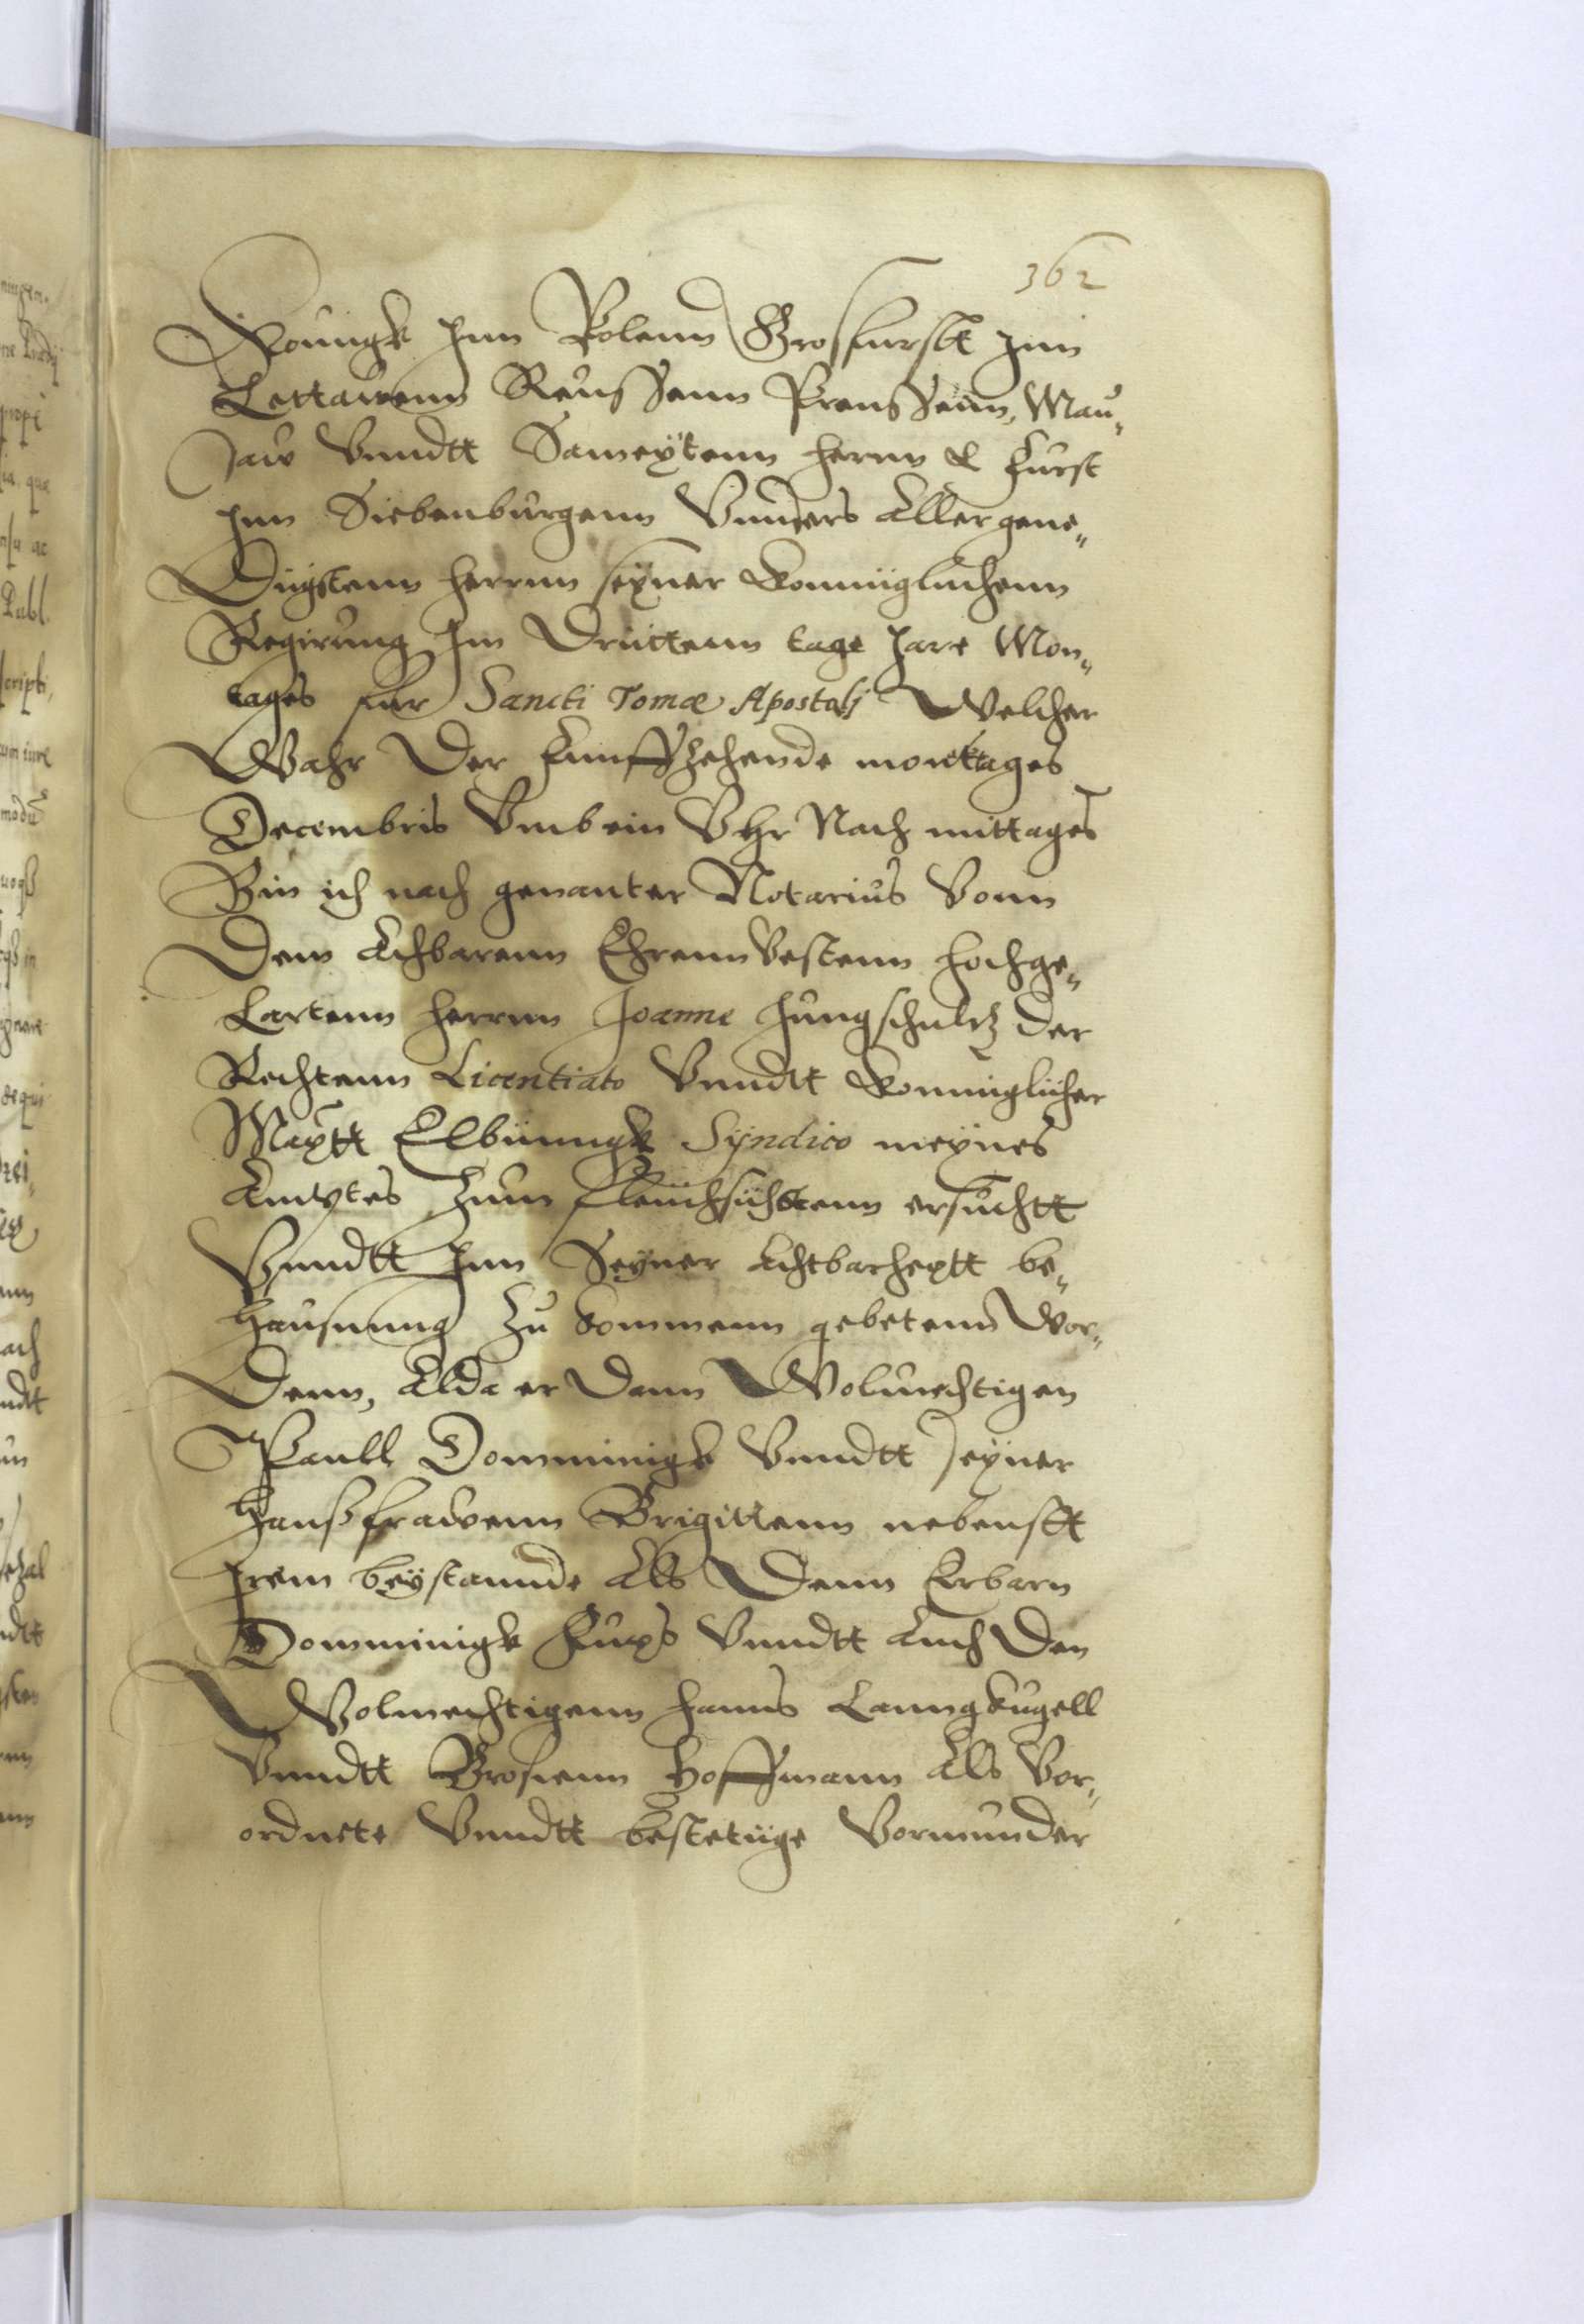 362
Koningk Inn Polenn Groskurstt Inn
Lettawenn Reussenn Preussenn, Mau„
saw Vnndtt Sameytenn hernn & Furst
Inn Siebenburgenn Vnnsers Allergene„
Digstenn herrnn seyner Konniglichenn
Regirung Im Drittenn tage Jare Mon„
tages fur Sancti Tomæ Apostolj Welcher
Wahr Der Funffzehende monttages
Decembris Vmb ein Vhr Nach mittages
Bin ich nach genanter Notarius Vonn
Dem Achbarenn Ehrennvestenn hochge„
Lartenn herrnn Joanne Jungschultz Der
Rechtenn Licentiato Vnndtt Konniglicher
Maytt Elbinngk Syndico meynes
Amptes Zum fleüchsichstenn ersuchtt
Vnndtt Inn Seyner Achtbarheytt be„
hausuung Zu kommenn gebetenn Wor„
Denn, Alda er Dann Wolmechtigen
Paull Domminigk Vnndtt seyner
Hausfrawenn Brigittenn nebenstt
Irem beystannde Als Denn Erbarn
Domminigk Fuxs Vnndtt Auch Den
Wolmechtigenn hanns Lanngkugell
Vnndtt Brosienn Hoffmann Als Vor„
ordnete Vnndtt bestetiige Vormunder